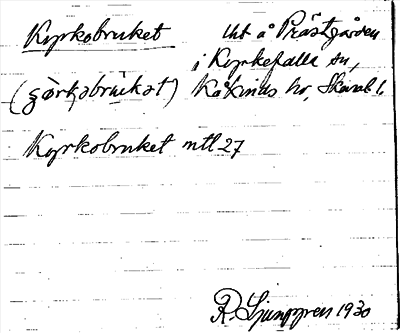 Kyrkobruket
Utt å Prästgården
i Kyrkefalla sn,
Kåkinds hd, Skarab. l.
Kyrkobruket mtl 27
R. Ljunggren 1930